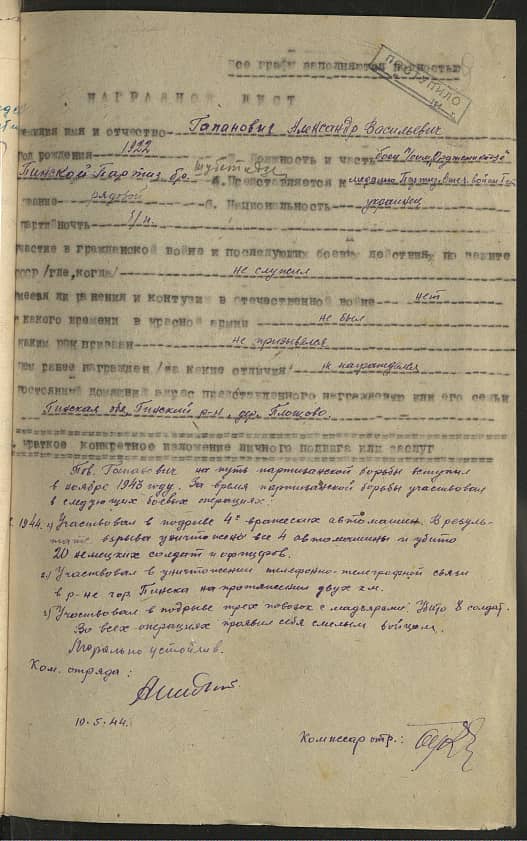 Все графы заполняются полностью
ПОСТУПИЛО
НАГРАДНОЙ ЛИСТ
Фамилия имя и отчество Гапанович Александр Васильевич
Год рождения 1922 Должность и часть боец
Пинской Партиз бр. Представляется к медалью Партиз. Отеч. войны
звание рядовой 6. Национальность украинец
партийность б/п.
участие в гражданской войне и последующих боевых действиях по защите
СССР /где, когда/ не служил
имеет ли ранения и контузии в отечественной войне нет
с какого времени в красной армии не был
каким рвк призван не призывался
чем ранее награжден /за какие отличия/ не награждался
постоянный домашний адрес представленного награждению или его семьи
Пинская обл, Пинский р-н, дер. Площово.
краткое конкретное изложение личного подвига или заслуг
Тов. Гапанович на путь партизанской борьбы вступил
в ноябре 1943 году. За время партизанской борьбы участвовал
в следующих боевых операциях:
1944. 1) Участвовал в подрыве 4х вражеских автомашин. В резуль-
тате взрыва уничтожено все 4 автомашины и убито
20 немецких солдат и офицеров.
2) Участвовал в уничтожении телефонно-телеграфной связи
в р-не гор. Пинска на протяжении двух км.
3) Участвовал в подрыве трех повозок с мадьярами. Убито 8 солдат.
Во всех операциях проявил себя смелым бойцом.
Морально устойчив.
Ком. отряда:
10.5.44.
Комиссар отр.: